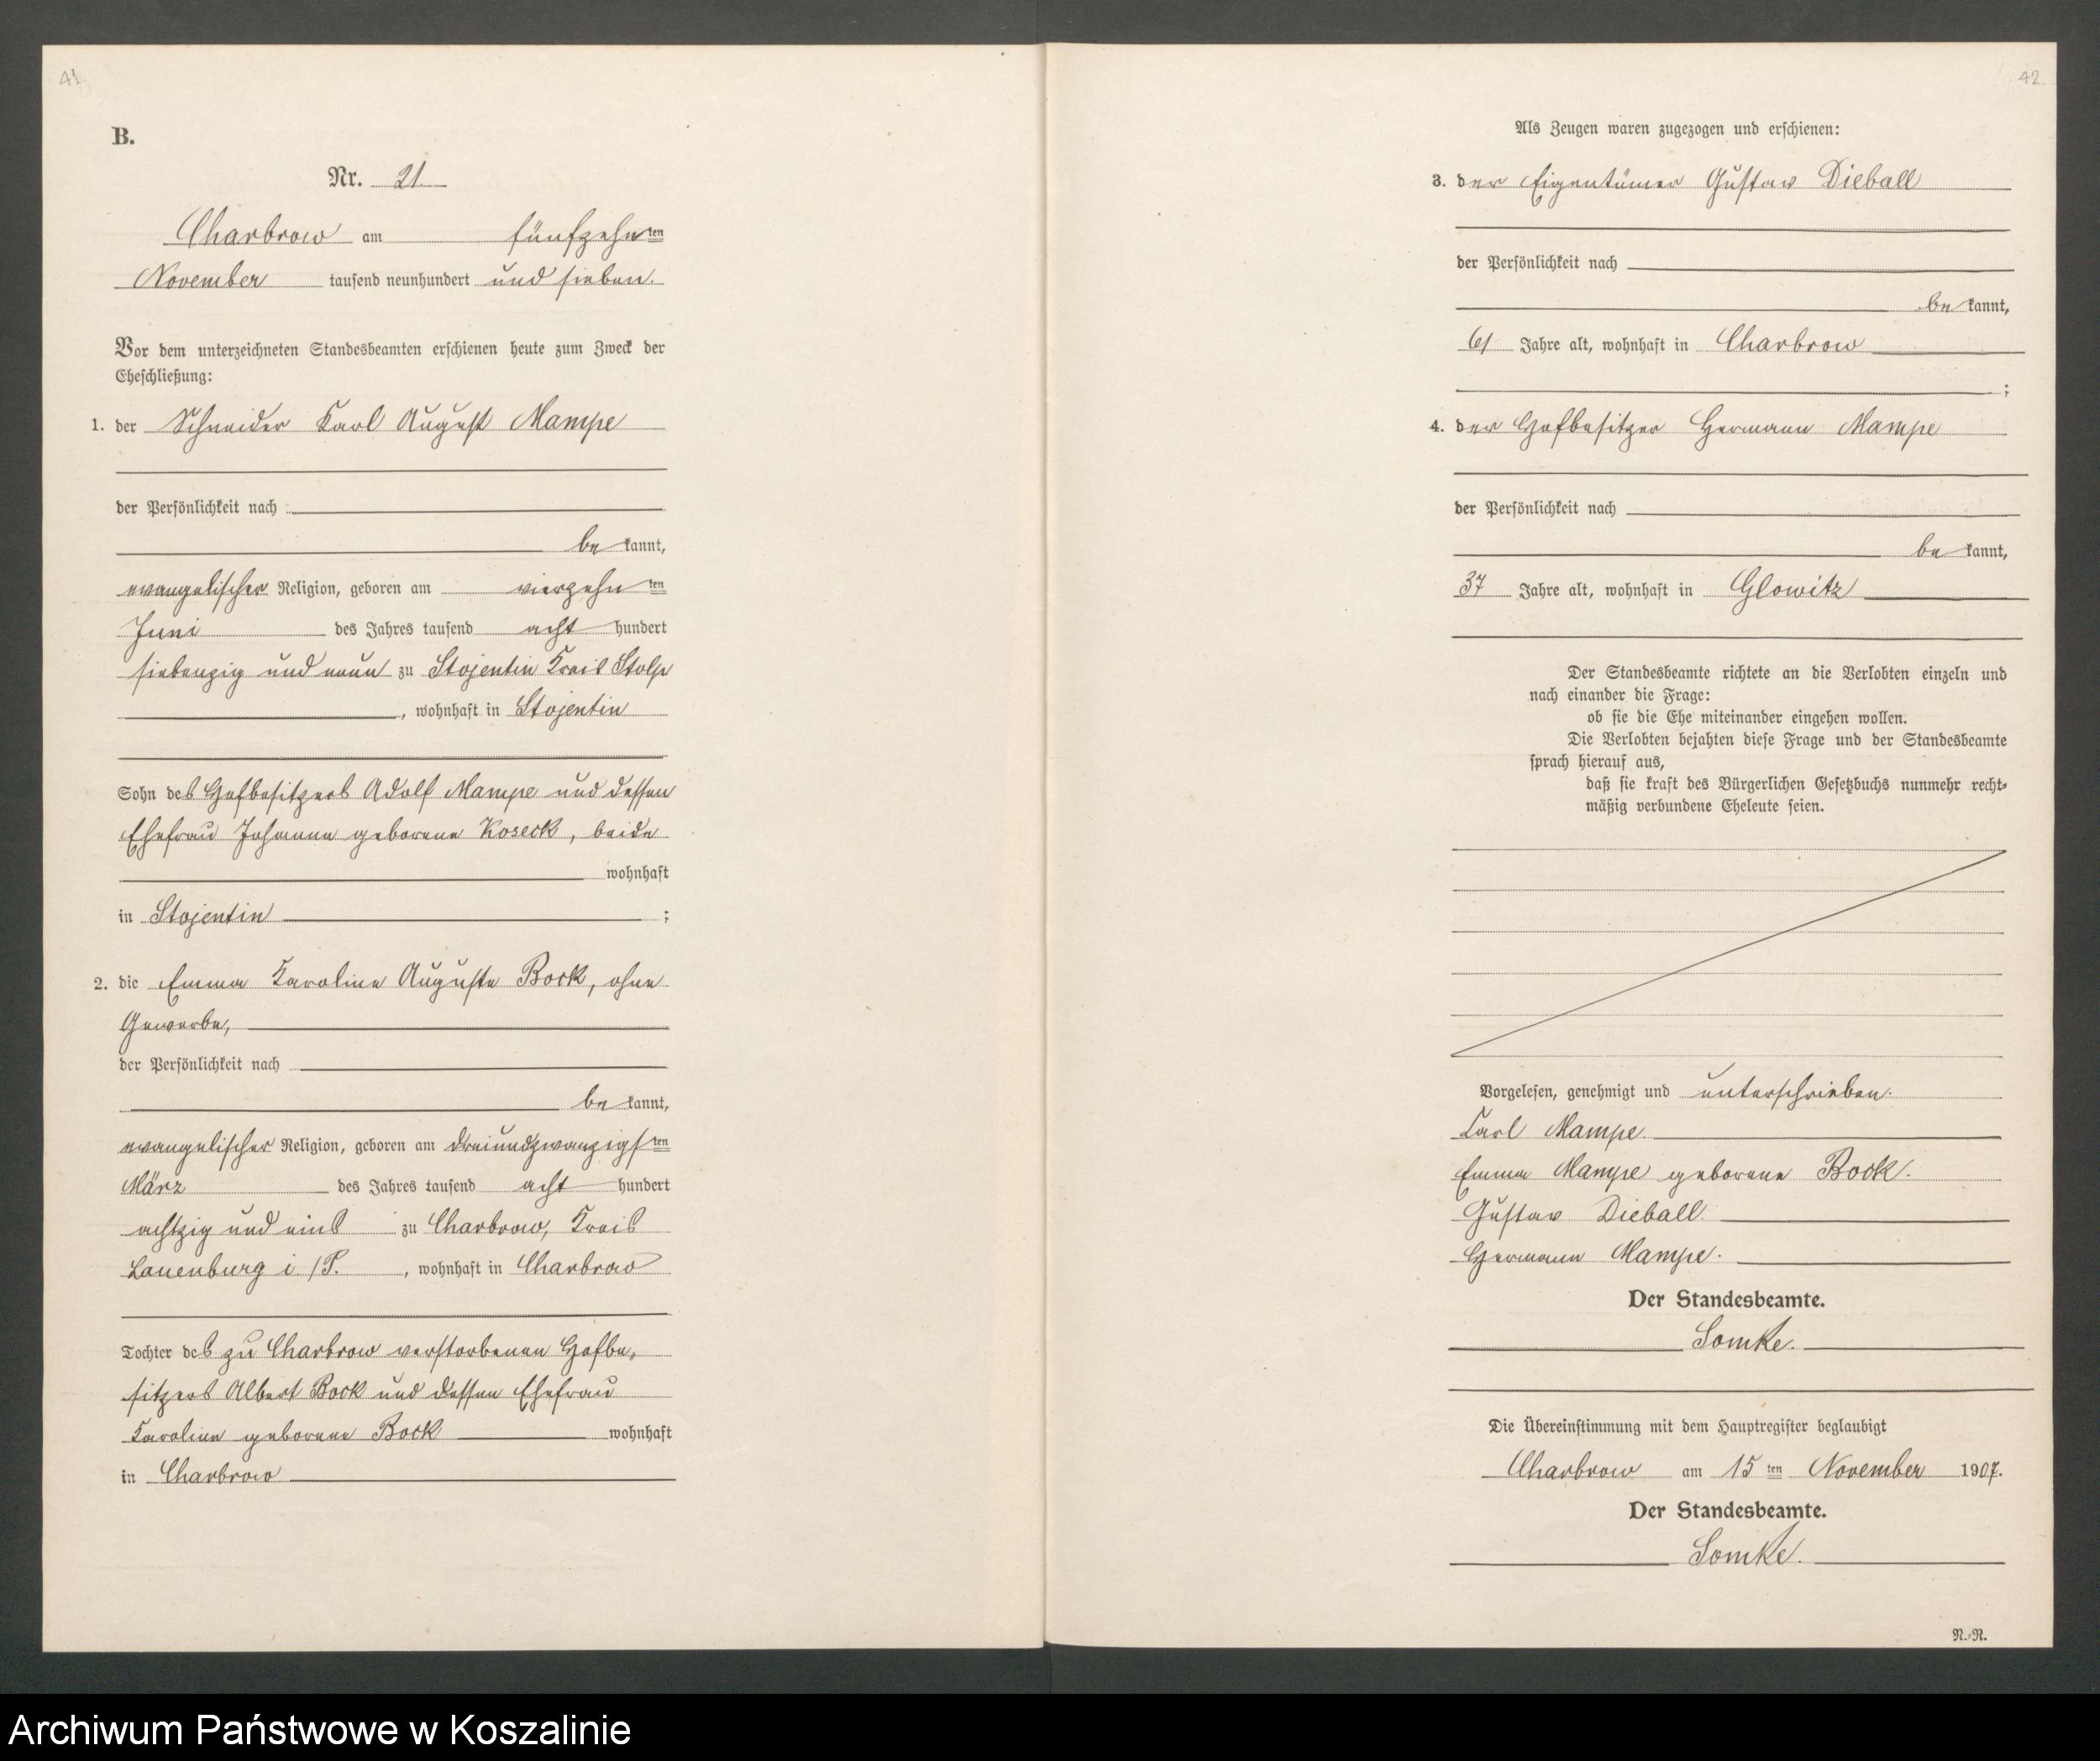 41.
B.
Nr. 21.
Charbrow am fünfzehnten
November tausend neunhundert und sieben.
Vor dem unterzeichneten Standesbeamten erschienen heute zum Zweck der
Eheschließung:
1. der Schneider Karl August Mampe
der Persönlichkeit nach
be kannt,
evangelischer Religion, geboren am vierzehn ten
Juni des Jahres tausend acht hundert
siebenzig und neun zu Stojentin Kreis Stolp
, wohnhaft in Stojentin
Sohn des Hofbesitzers Adolf Mampe und dessen
Ehefrau Johanne geborene Koseck, beide
wohnhaft
in Stojentin ;
2. die Emma Karoline Auguste Bock, ohne
Gewerbe,
der Persönlichkeit nach
be kannt,
evangelischer Religion, geboren am dreiundzwanzigsten
März des Jahres tausend acht hundert
achtzig und eins zu Charbrow, Kreis
Lauenburg i/P. , wohnhaft in Charbrow
Tochter des zu Charbrow verstorbenen Hofbe„
sitzers Albert Bock und dessen Ehefrau
Karoline geborene Bock wohnhaft
in Charbrow
42.
Als Zeugen waren zugezogen und erschienen:
3. der Eigentümer Gustav Dieball
der Persönlichkeit nach
be kannt,
61 Jahre alt, wohnhaft in Charbrow
;
4. der Hofbesitzer Hermann Mampe
der Persönlichkeit nach
be kannt,
37 Jahre alt, wohnhaft in Glowitz
Der Standesbeamte richtete an die Verlobten einzeln und
nach einander die Frage:
ob sie die Ehe miteinander eingehen wollen.
Die Verlobten bejahten diese Frage und der Standesbeamte
sprach hierauf aus,
daß sie kraft des Bürgerlichen Gesetzbuchs nunmehr recht-
mäßig verbundene Eheleute seien.
Vorgelesen, genehmigt und unterschrieben.
Karl Mampe.
Emma Mampe geborene Bock.
Gustav Dieball.
Hermann Mampe.
Der Standesbeamte.
Somke.
Die Übereinstimmung mit dem Hauptregister beglaubigt
Charbrow am 15 ten November 1907.
Der Standesbeamte.
Somke.
N.-R.
Archiwum Państwowe w Koszalinie